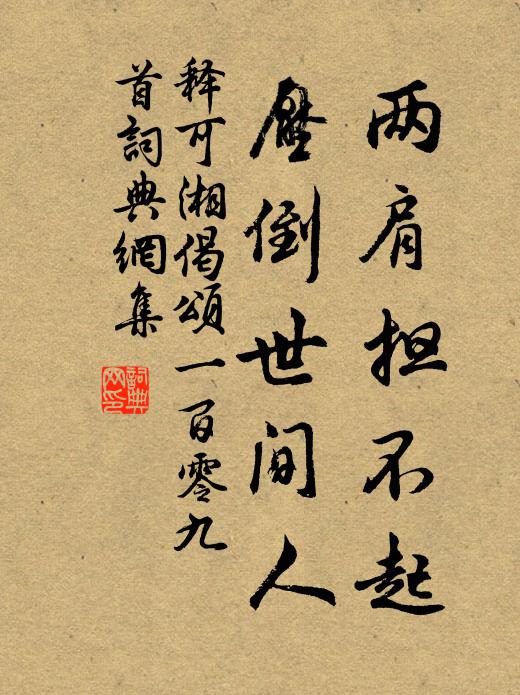 两肩担不起
压倒世间人
释可湘偈頌一百零九
首詞典網集
詞典网印